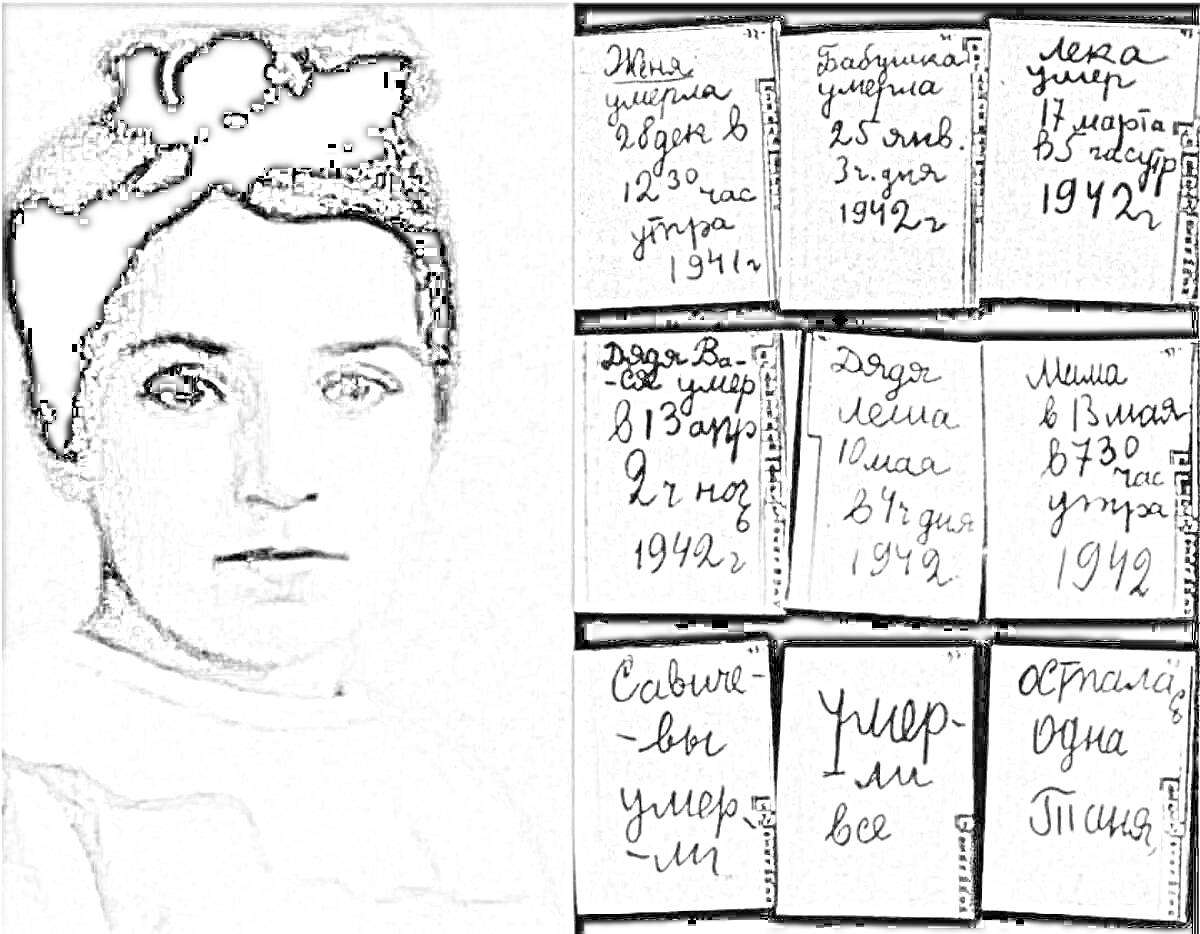 Женя
умерла
28 дек в
12 30 час
утра
1941 г
Бабушка
умерла
25 янв.
3 ч. дня
1942 г
Лека
умер
17 марта
в 5 час утр
1942 г
Дядя Ва-
-ся умер
в 13 апр
2 ч ночь
1942 г
Дядя
Леша
10 мая
в 4 ч дня
1942
Мама
в 13 мая
в 7 30
час
утра
1942
Савиче-
-вы
умер
-ли
Умер-
-ли
все
Осталась
одна
Таня